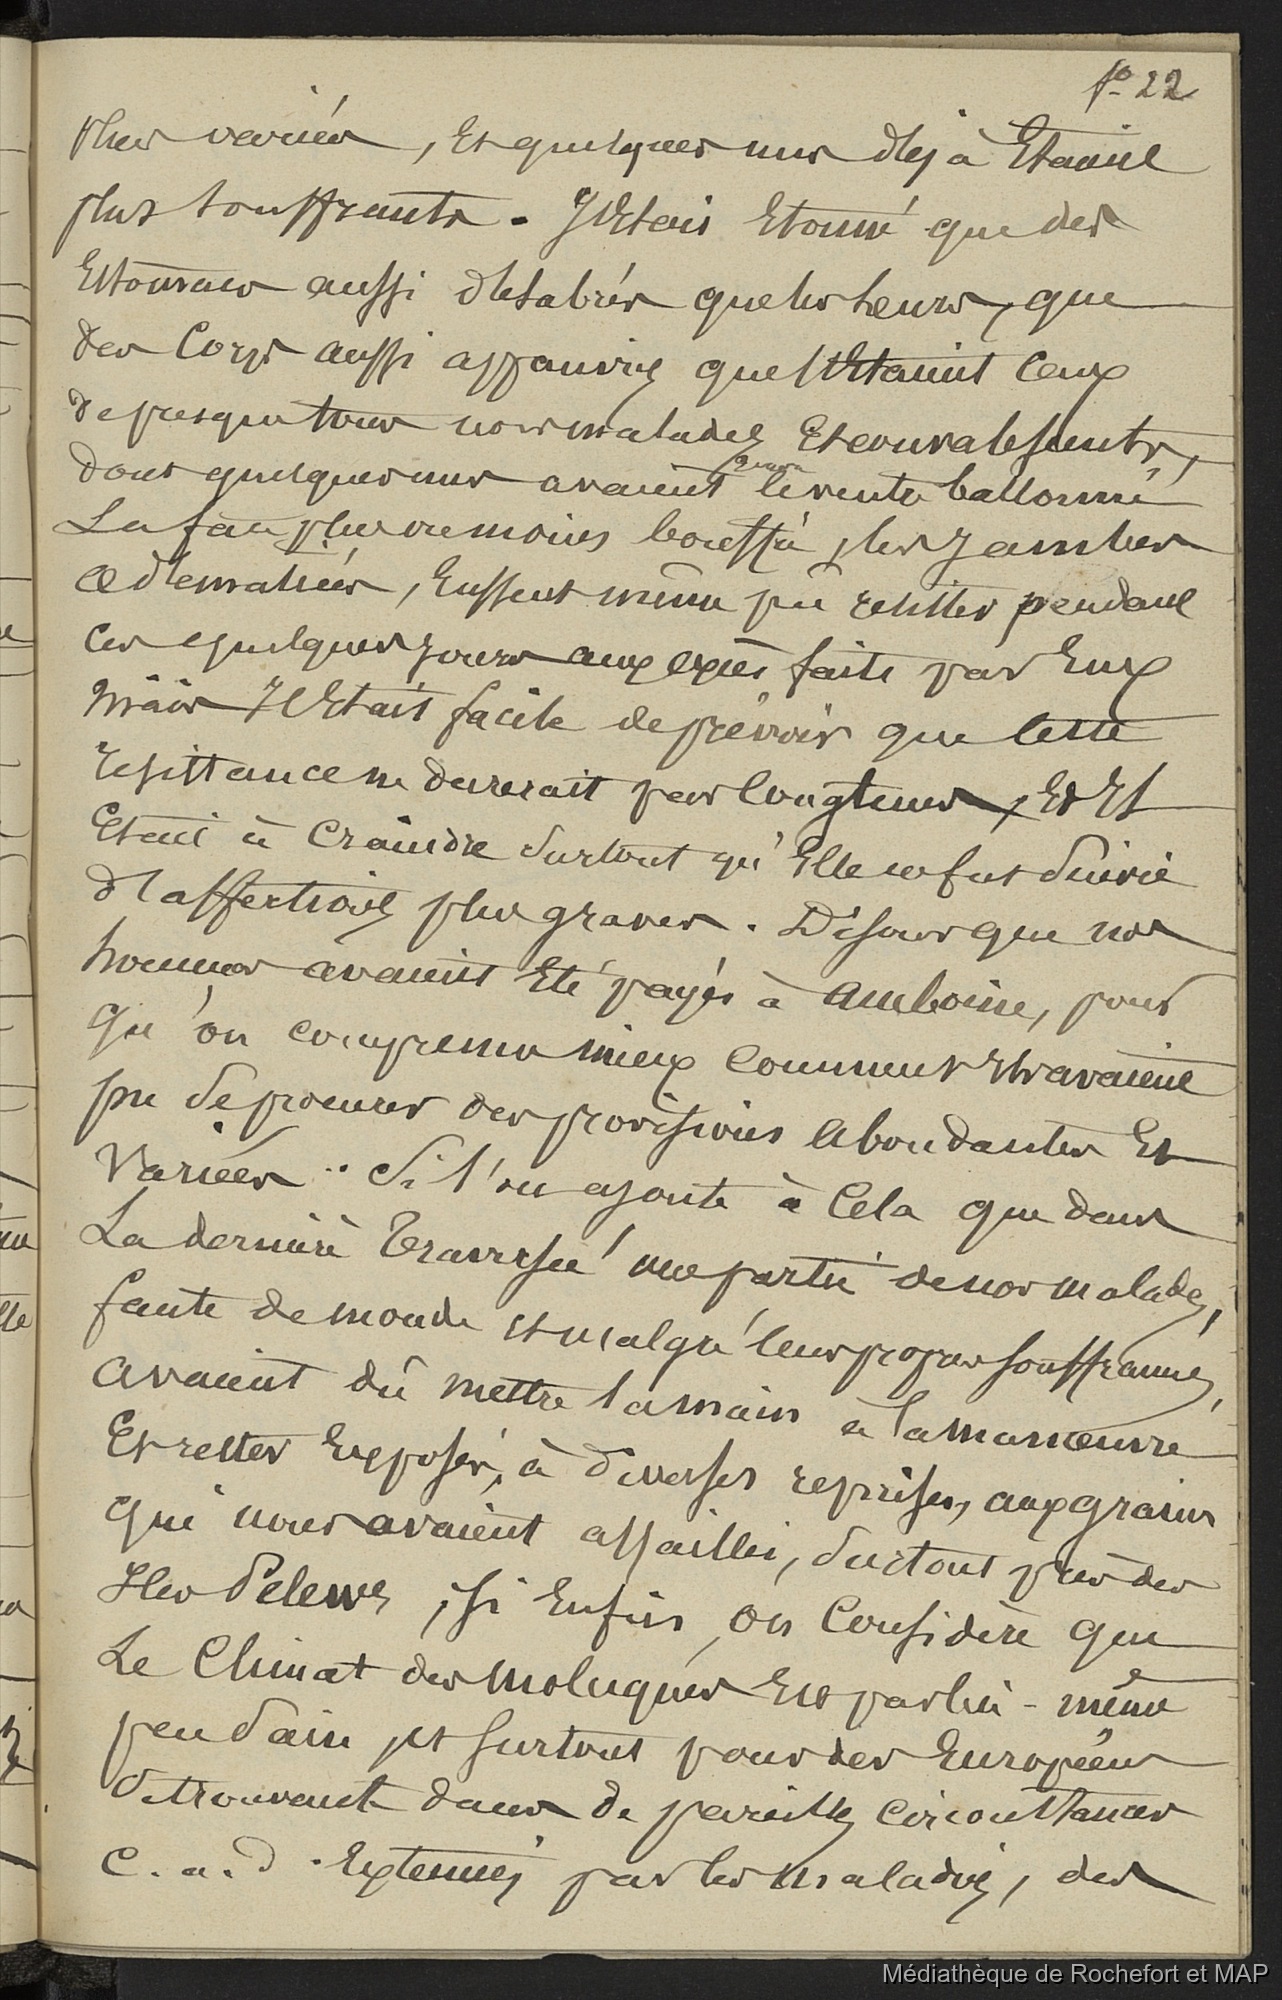 fo 22
plus variées, Et quelques uns déjà Etaient
plus souffrants. J'Etais Etonné que des
Estomacs aussi délabrés que les leurs, que
des Corps aussi appauvris que l'Etaient Ceux
de presque tous nos malades Et convalescents,
dont quelques uns avaient le ventre ballonné
La face plus ou moins bouffie, les jambes
œdématiées, Eussent même pû résister pendant
ces quelques jours aux excès faits par Eux
mais Il Etait facile de prévoir que Cette
résistance ne durerait pas longtems, Et Il
Etait à Craindre surtout qu'Elle ne fut suivie
d'affections plus graves. Disons que nos
hommes avaient Eté payés à Amboine, pour
qu'on comprenne mieux Comment Ils avaient
pu se procurer des provisions Abondantes Et
Variées. Si l'on ajoute à Cela que dans
La dernière Traversée une partie de nos malades,
faute de monde et malgré leurs propres souffrances,
avaient dû mettre la main à la manœuvre
Et rester Exposés, à diverses reprises, aux grains
qui nous avaient assaillis, surtout par des
Iles Pelews, si Enfin on Considère que
Le Climat des moluques Est par lui-même
peu sain, et surtout pour des Européens
se trouvant dans de pareilles circonstances
c. a. d. Exténués par les maladies, des
Médiathèque de Rochefort et MAP